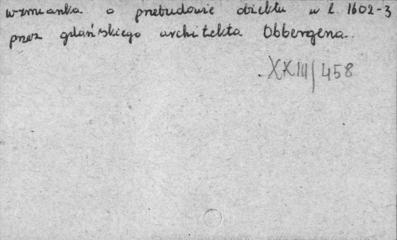 wzmianka o przebudowie obiektu w l. 1602-3
przez gdańskiego architekta Obbergena.
XXIII/458